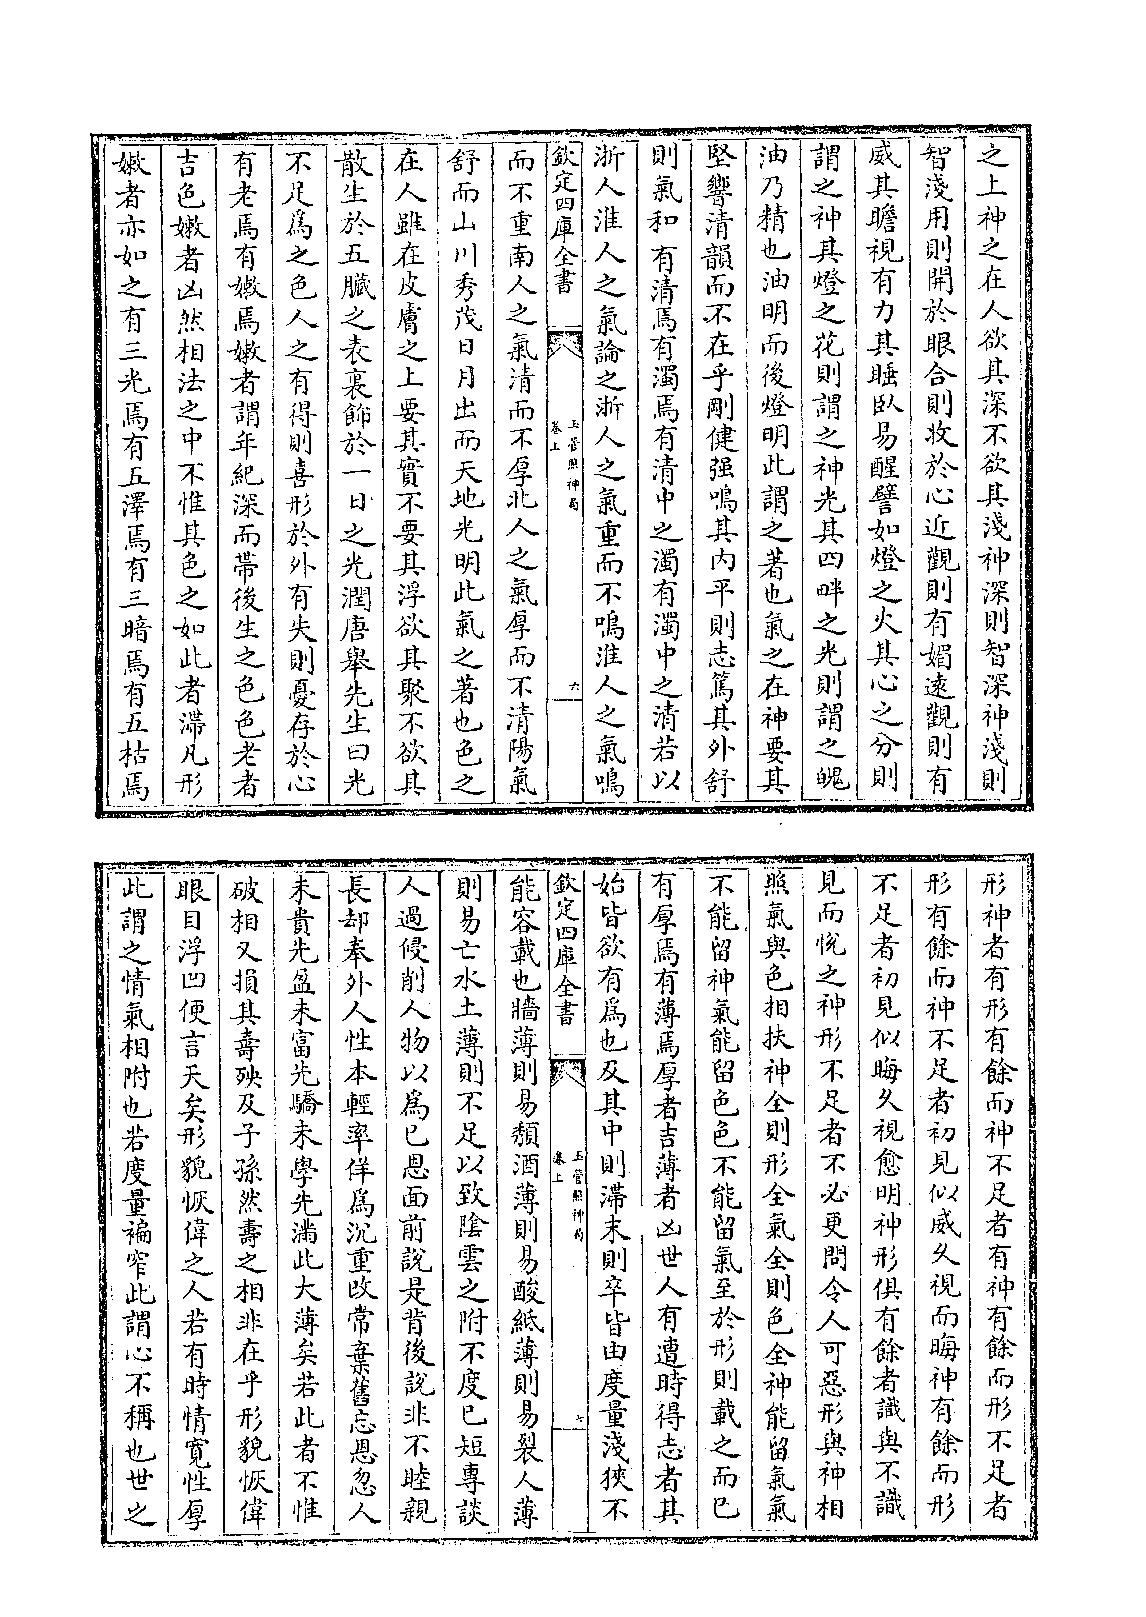 之上神之在人欲其深不欲其淺神深則智深神淺則
智淺用則開於眼合則收於心近觀則有媚逺觀則有
威其瞻視有力其睡臥易醒譬如燈之火其心之分則
謂之神其燈之花則謂之神光其四畔之光則謂之魄
油乃精也油明而後燈明此謂之著也氣之在神要其
堅響清韻而不在乎剛健强鳴其内平則志篤其外舒
則氣和有清焉有濁焉有清中之濁有濁中之清若以
浙人淮人之氣論之浙人之氣重而不鳴淮人之氣鳴
欽定四庫全書
玉管照神局
卷上
六
而不重南人之氣清而不厚北人之氣厚而不清陽氣
舒而山川秀茂日月出而天地光明此氣之著也色之
在人雖在皮膚之上要其實不要其浮欲其聚不欲其
散生於五臓之表裏飾於一日之光潤唐舉先生曰光
不足爲之色人之有得則喜形於外有失則憂存於心
有老焉有嫩焉嫩者謂年紀深而帯後生之色色老者
吉色嫩者凶然相法之中不惟其色之如此者滯凡形
嫩者亦如之有三光焉有五澤焉有三暗焉有五枯焉
形神者有形有餘而神不足者有神有餘而形不足者
形有餘而神不足者初見似威乆視而晦神有餘而形
不足者初見似晦乆視愈明神形俱有餘者識與不識
見而悅之神形不足者不必更問令人可惡形與神相
照氣與色相扶神全則形全氣全則色全神能留氣氣
不能留神氣能留色色不能留氣至於形則載之而已
有厚焉有薄焉厚者吉薄者凶世人有遭時得志者其
始皆欲有爲也及其中則滯末則卒皆由度量淺狹不
欽定四庫全書
玉管照神局
卷上
七
能容載也牆薄則易頽酒薄則易酸紙薄則易裂人薄
則易亡水土薄則不足以致隂雲之附不度已短専談
人過侵削人物以爲已恩面前說是背後說非不睦親
長却奉外人性本輕率佯爲沉重改常棄舊忘恩忽人
未貴先盈未富先驕未學先滿此大薄矣若此者不惟
破相又損其壽殃及子孫然壽之相非在乎形貌恢偉
眼目浮凹便言夭矣形貌恢偉之人若有時情寛性厚
此謂之情氣相附也若度量褊窄此謂心不稱也世之